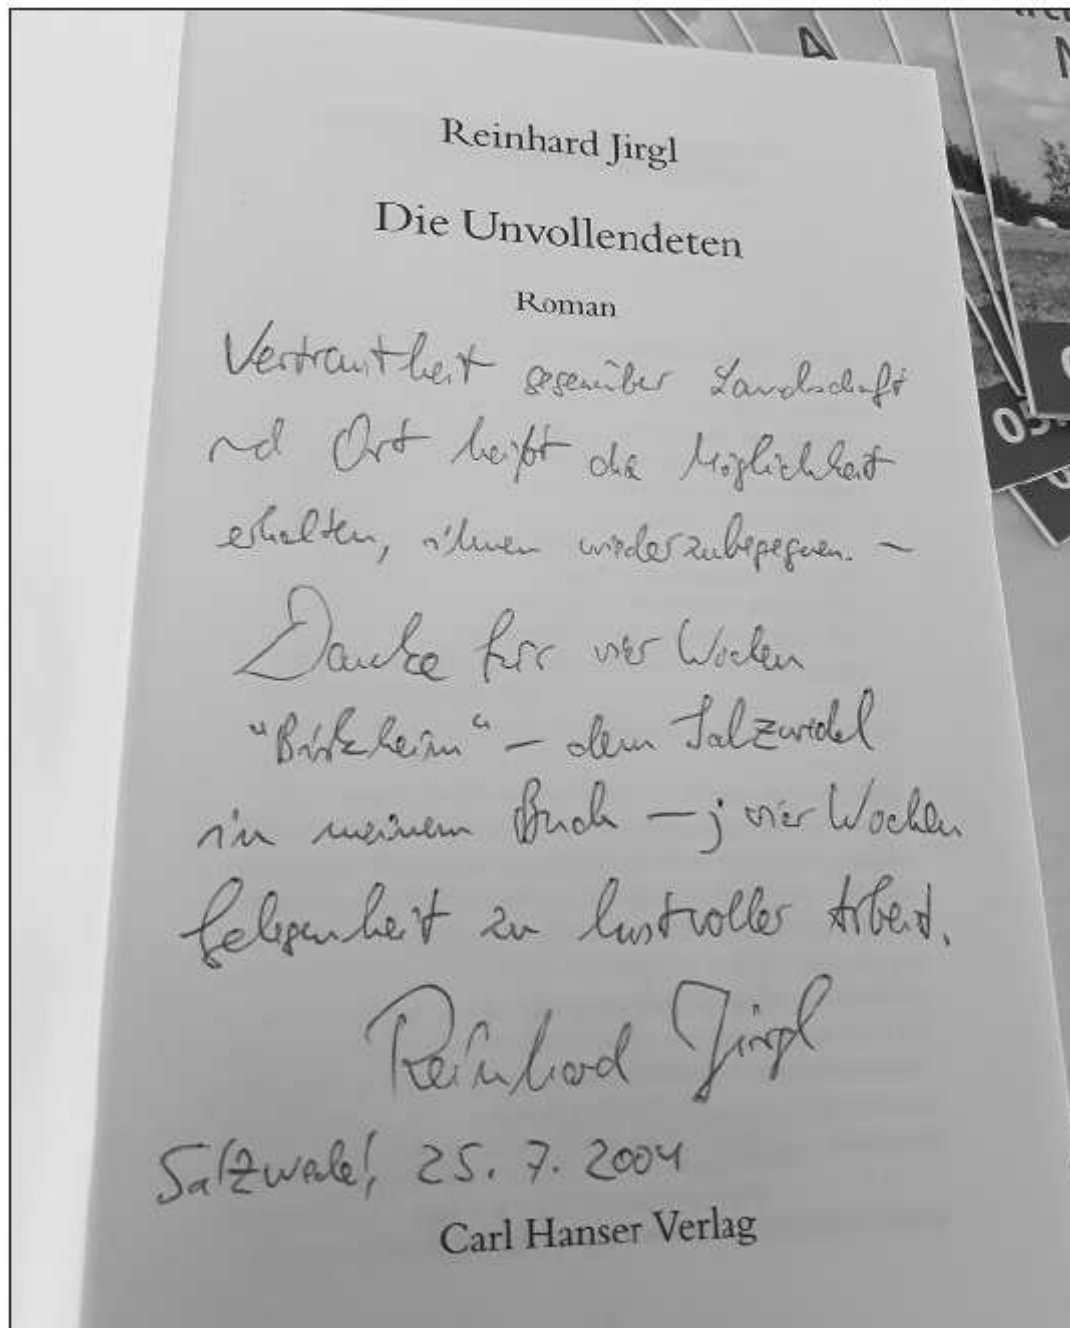 A
N
Reinhard Jirgl
Die Unvollendeten
Roman
Vertrautheit gegenüber Landschaft
und Ort heißt die Möglichkeit
erhalten, ihnen wiederzubegegnen. —
Danke für vier Wochen
"Birkheim" – dem Salzwedel
in meinem Buch – ; vier Wochen
Gelegenheit zu lustvoller Arbeit.
Reinhard Jirgl
Salzwedel, 25. 7. 2004
Carl Hanser Verlag